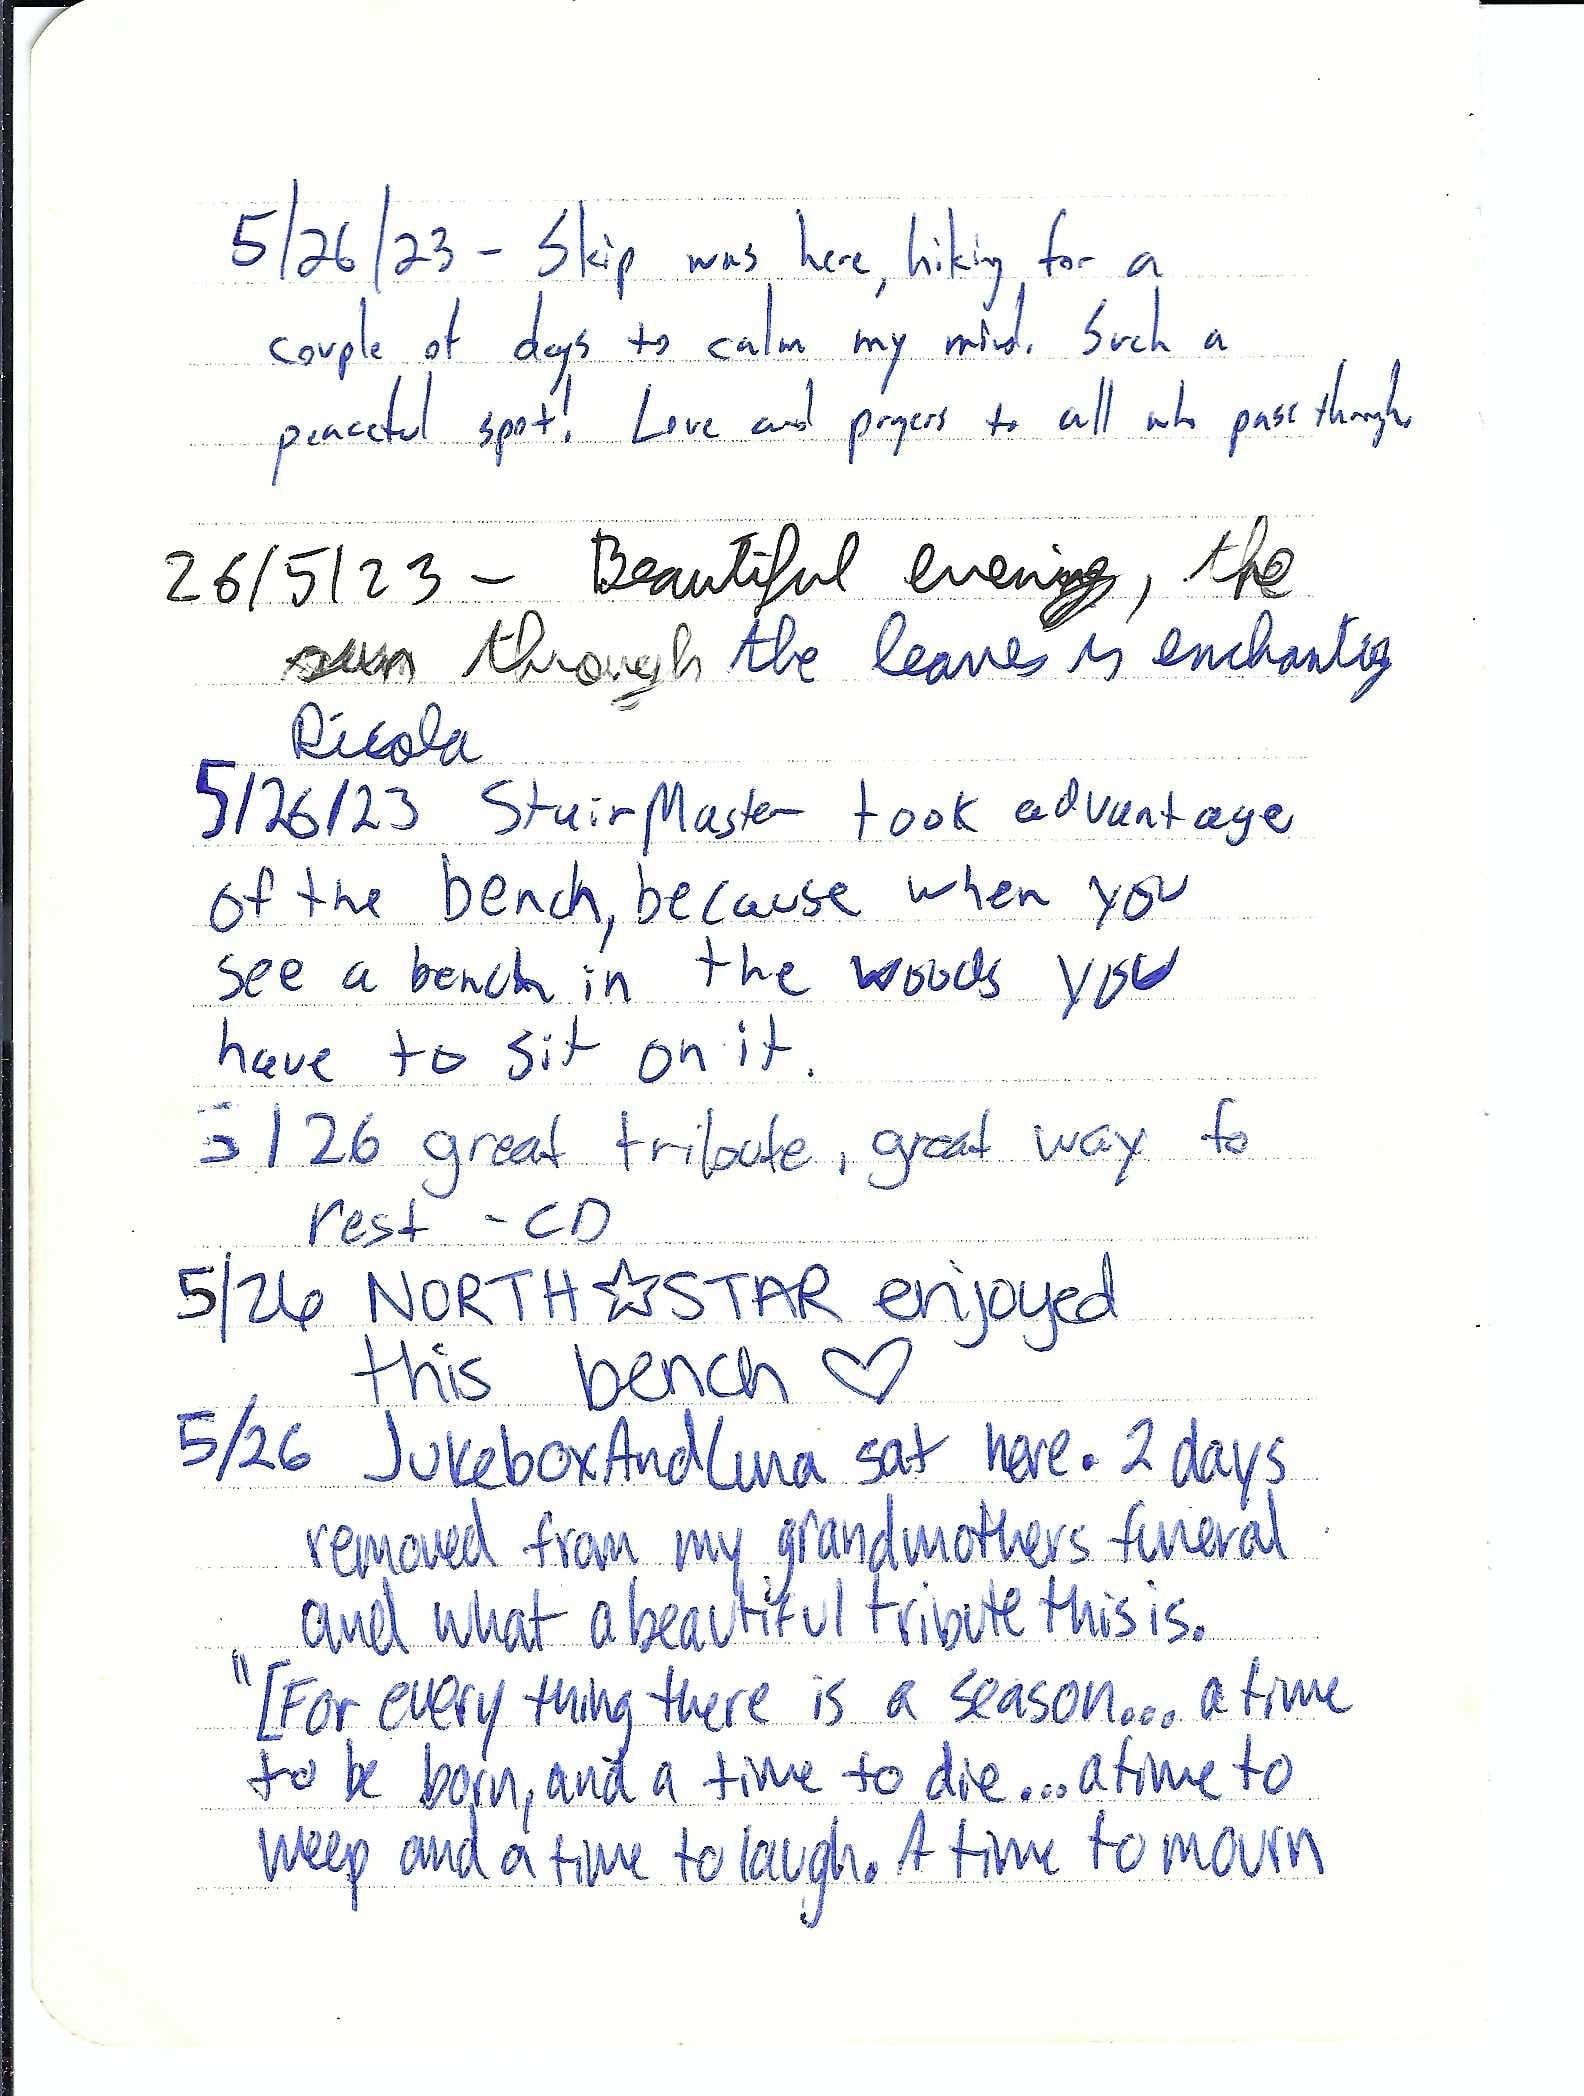 5/26/23 - Skip was here, hiking for a
couple of days to calm my mind. Such a
peaceful spot! Love and prayers to all who pass through.
26/5/23 - Beautiful evening, the
sun through the leaves is enchanting
Ricola
5/26/23 StairMaster took advantage
of the bench, because when you
see a bench in the woods you
have to sit on it.
5/26 great tribute, great way to
rest - CD
5/26 NORTH☆STAR enjoyed
this bench ♡
5/26 JukeboxAndLuna sat here. 2 days
removed from my grandmothers funeral
and what a beautiful tribute this is.
"[For every thing there is a season... a time
to be born, and a time to die... a time to
weep and a time to laugh. A time to mourn